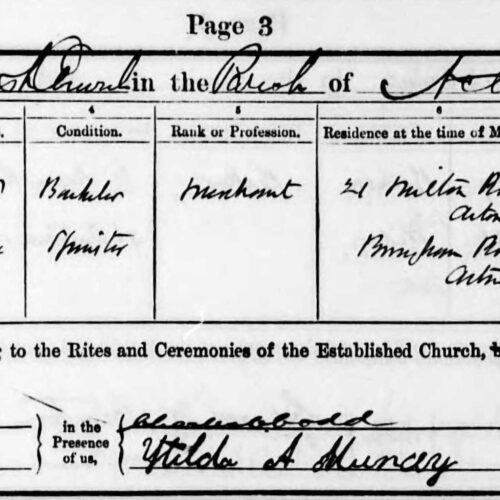 Page 3
Church in the Parish of Act
4 5 6
Condition. Rank or Profession. Residence at the time of M
Bachelor Merchant 21 Milton R
Acton
Spinster Ro
Acton
to the Rites and Ceremonies of the Established Church,
in the
Presence
of us,
Dodd
Hilda A Muncey